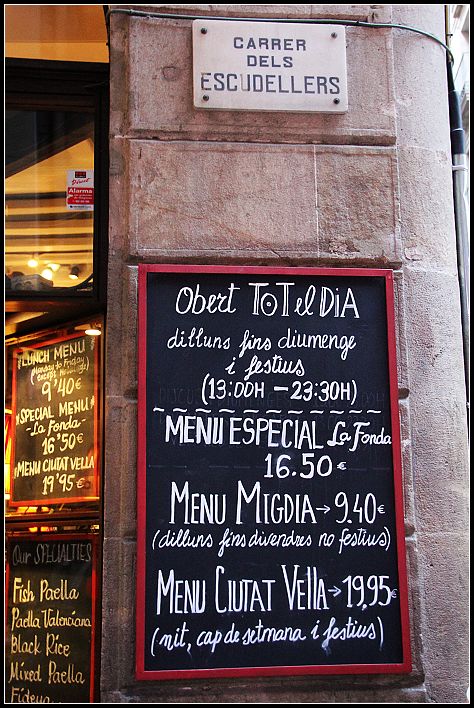 CARRER
DELS
ESCUDELLERS
Alarma
Obert ToT el DiA
dilluns fins diumenge
i festius
(13:00H - 23:30H)
MENU ESPECIAL La Fonda
16.50€
MENU MIGDIA → 9.40€
(dilluns fins divendres no festius)
MENU CIUTAT VELLA → 19,95€
(nit, cap de setmana i festius)
LUNCH MENU
(Monday to Friday
9'40€
SPECIAL MENU
-La Fonda-
16'50€
MENU CIUTAT VELLA
19'95€
Our SPECIALTIES
Fish Paella
Paella Valenciana
Black Rice
Mixed Paella
Fideua